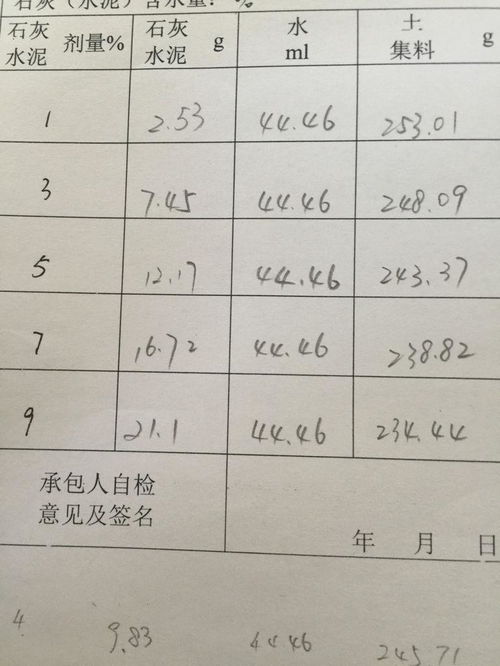 石灰（水泥）含水量：%
石灰 水泥 剂量% 石灰 水泥 g 水 ml 土 集料 g
1 2.53 44.46 253.01
3 7.45 44.46 248.09
5 12.17 44.46 243.37
7 16.72 44.46 238.82
9 21.1 44.46 234.44
承包人自检
意见及签名
年 月 日
4 9.83 44.46 245.71